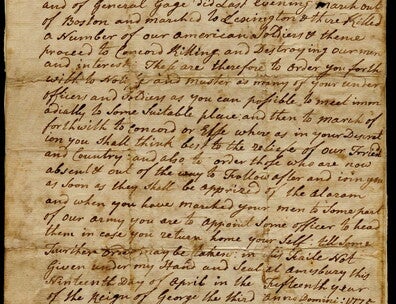 and of General Gage Did Last Evening march out
of Boston and marched to Lexington & there Killed
a Number of our American Soldiers & thence
proceed to Concord Killing and Destroying our men
and interest These are therefore to order you forth
with to Notify and muster as many of your under
officers and Soldiers as you can possible to meet imm
adially to Some Suitable place and then to march of
forthwith to Concord or Else where as in your Descret
ion you Shall think best to the releese of our Friend
and Country: and also to order those who are now
absent & out of the way to Follow after and Join you
as Soon as they shall be apprized of the Alaram
and when you have marched your men to Some part
of our army you are to appoint Some officer to head
them in case you return home your Self: till Some
Further Order may be taken: in this Faile Not
Given under my Hand and Seal at Amesbury this
Ninteenth Day of April in the Fifteenth year
of the Reign of George the third Anno Domini: 1775